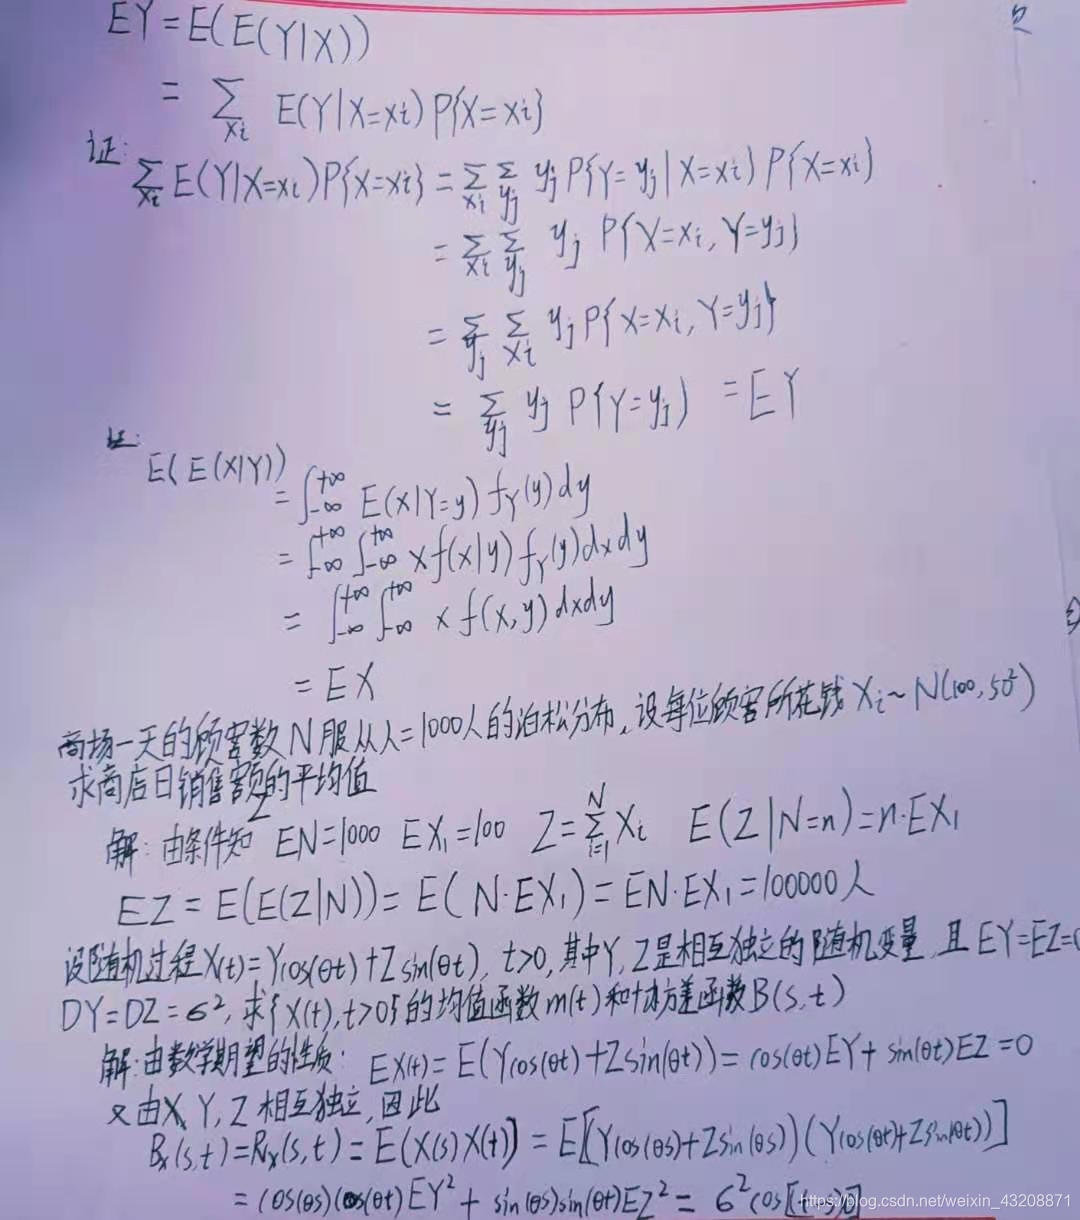 EY = E(E(Y|X))
= ∑_{xi} E(Y|X=xi) P{X=xi}
证: ∑_{xi} E(Y|X=xi) P{X=xi} = ∑_{xi} ∑_{yj} yj P{Y=yj|X=xi} P{X=xi}
= ∑_{xi} ∑_{yj} yj P{X=xi, Y=yj}
= ∑_{yj} ∑_{xi} yj P{X=xi, Y=yj}
= ∑_{yj} yj P{Y=yj) = EY
证:
E(E(X|Y))
= ∫_{-∞}^{+∞} E(X|Y=y) f_Y(y) dy
= ∫_{-∞}^{+∞} ∫_{-∞}^{+∞} x f(x|y) f_Y(y) dx dy
= ∫_{-∞}^{+∞} ∫_{-∞}^{+∞} x f(x,y) dxdy
= EX
商场一天的顾客数N服从λ=1000人的泊松分布,设每位顾客所花钱Xi~N(100,50²)
求商店日销售额Z的平均值
解:由条件知 EN=1000 EX₁=100 Z=∑_{i=1}^{N} Xi E(Z|N=n)=n·EX₁
EZ = E(E(Z|N)) = E(N·EX₁) = EN·EX₁ = 100000人
设随机过程X(t)=Ycos(θt)+Zsin(θt), t>0,其中Y,Z是相互独立的随机变量,且EY=EZ=0
DY=DZ=σ²,求{X(t),t>0}的均值函数m(t)和协方差函数B(s,t)
解:由数学期望的性质: EX(t) = E(Ycos(θt)+Zsin(θt)) = cos(θt)EY + sin(θt)EZ = 0
又由X,Y,Z相互独立,因此
B_X(s,t)=R_X(s,t) = E(X(s)X(t)] = E[(Ycos(θs)+Zsin(θs))(Ycos(θt)+Zsin(θt))]
= cos(θs)cos(θt)EY² + sin(θs)sin(θt)EZ² = σ²cos[(t-s)θ]
https://blog.csdn.net/weixin_43208871